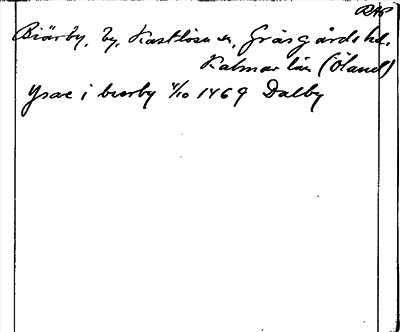 RAP
Biärby, by, Kastlösa sn, Gräsgårds hd.
Kalmar län (Öland)
Ysac i bierby 4/10 1469 Dalby